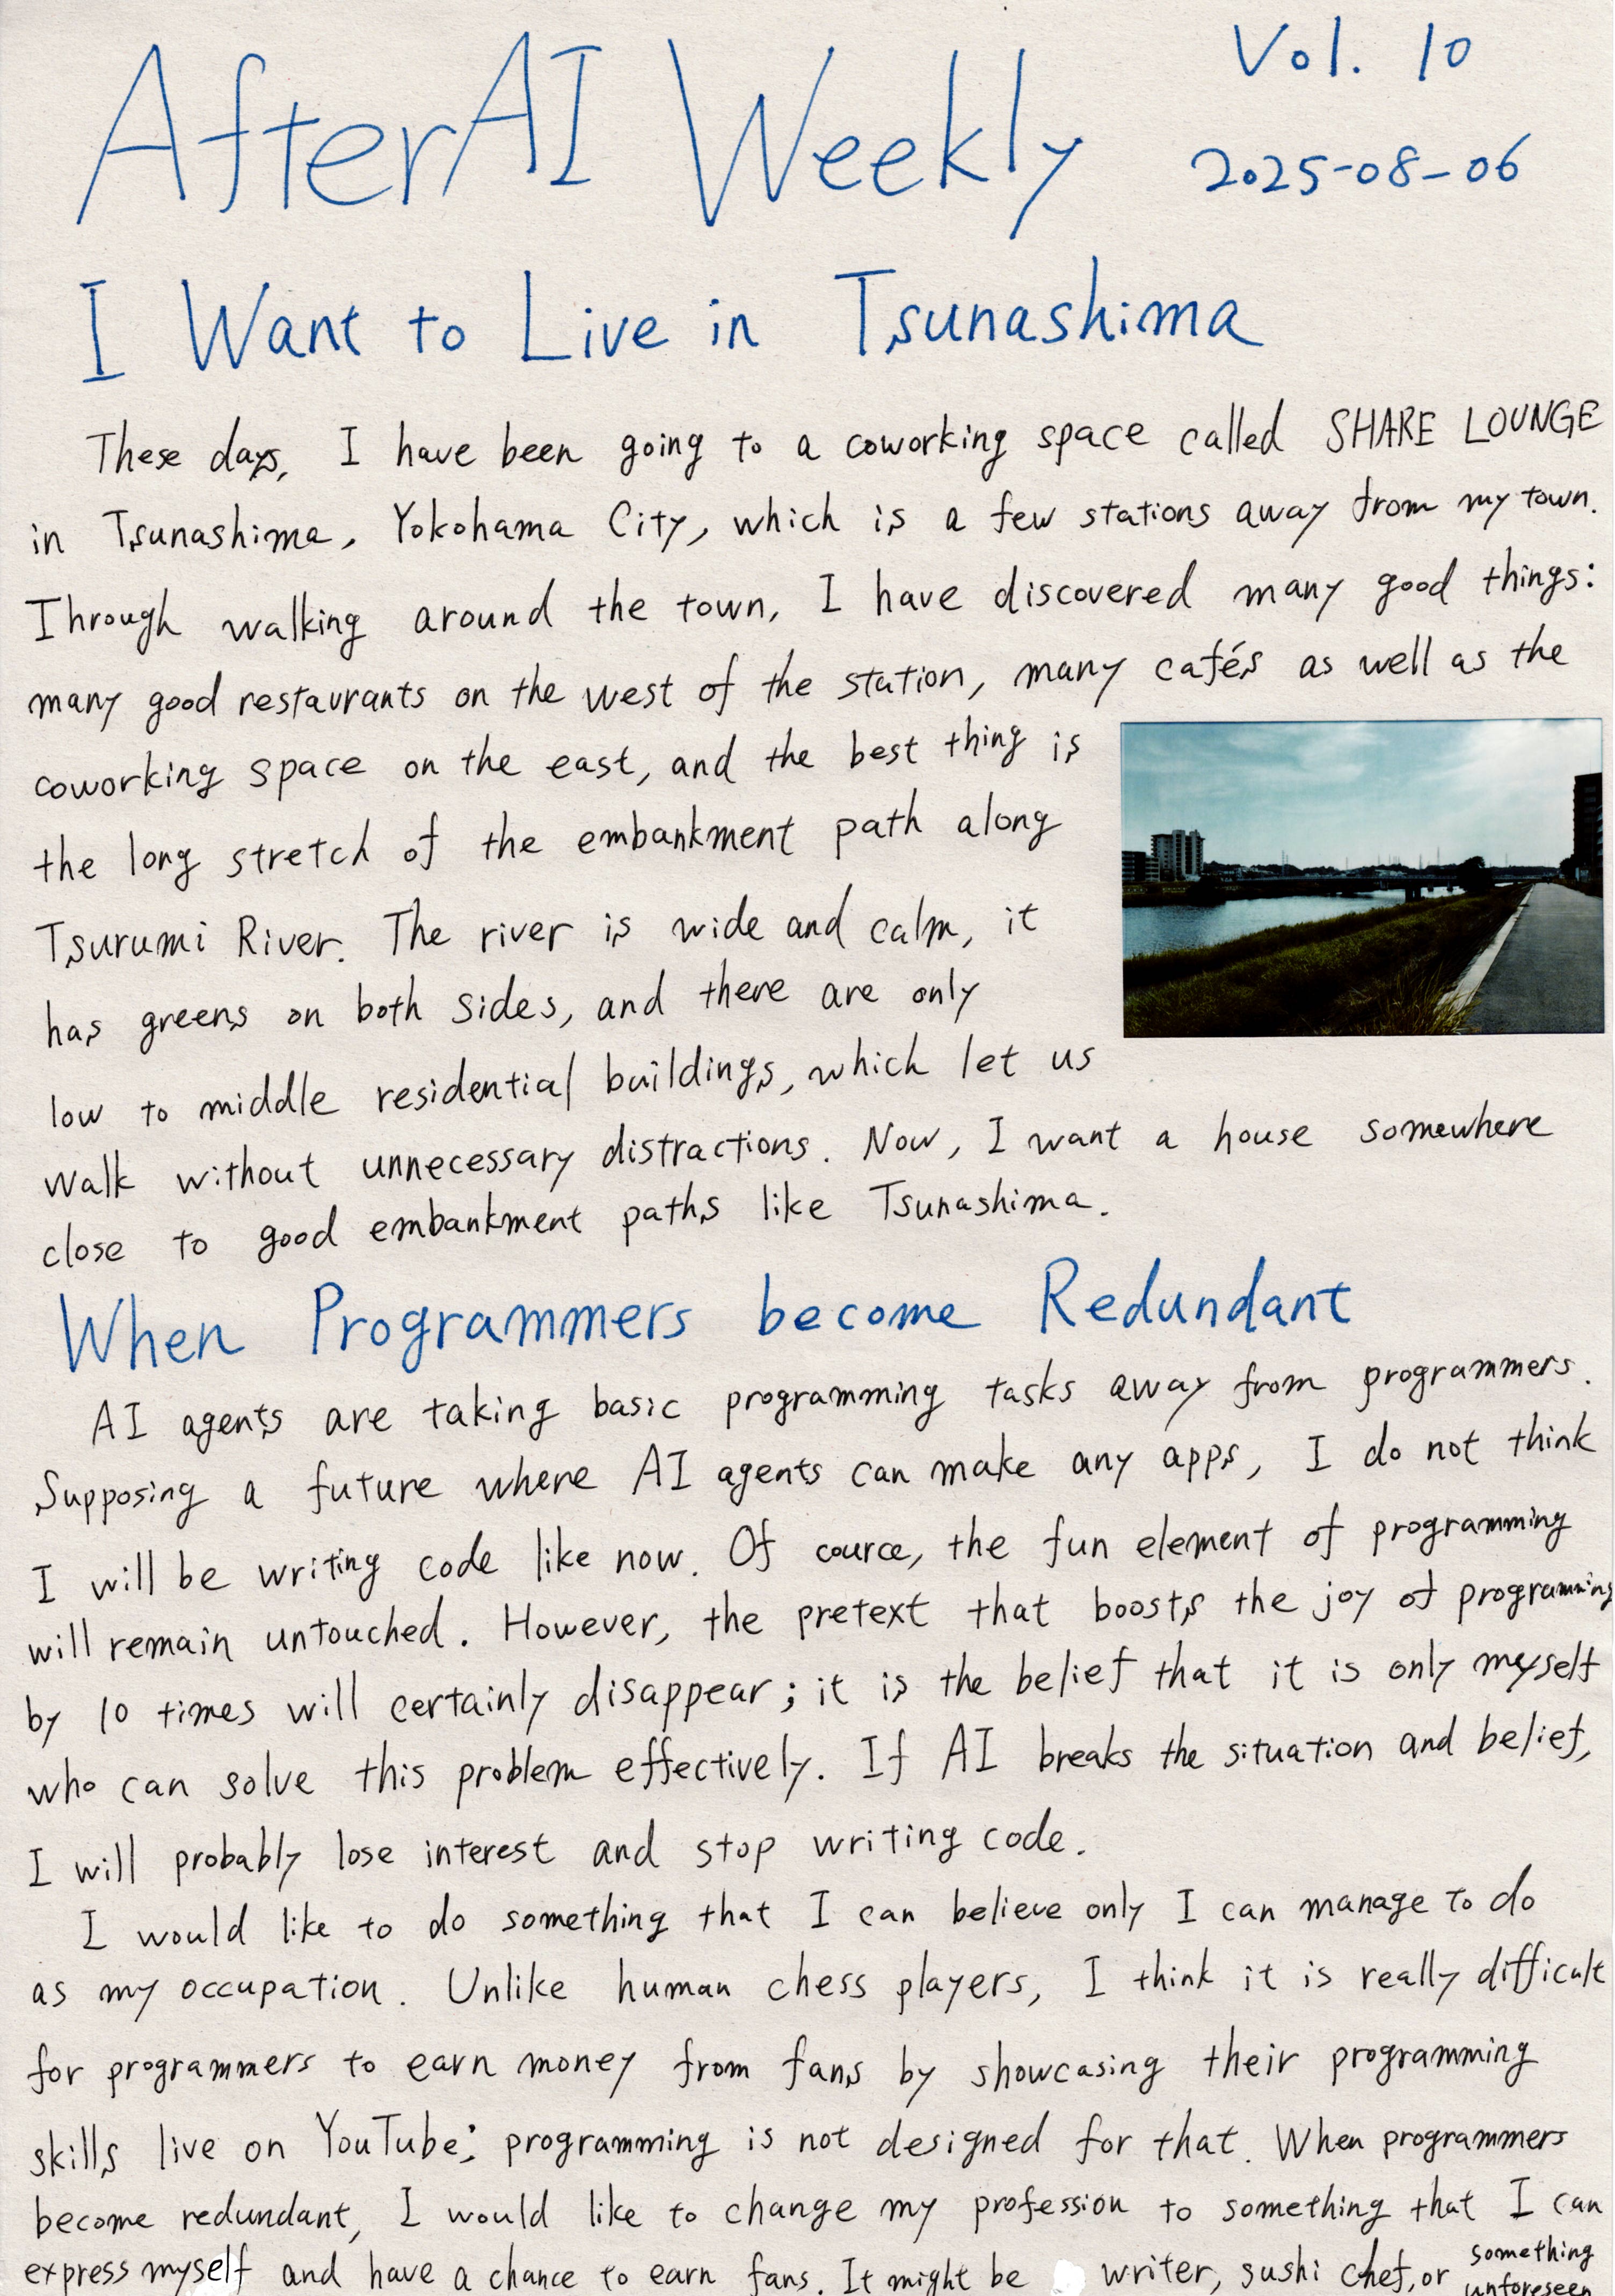 AfterAI Weekly
Vol. 10
2025-08-06
I Want to Live in Tsunashima
These days, I have been going to a coworking space called SHARE LOUNGE
in Tsunashima, Yokohama City, which is a few stations away from my town.
Through walking around the town, I have discovered many good things:
many good restaurants on the west of the station, many cafés as well as the
coworking space on the east, and the best thing is
the long stretch of the embankment path along
Tsurumi River. The river is wide and calm, it
has greens on both sides, and there are only
low to middle residential buildings, which let us
walk without unnecessary distractions. Now, I want a house somewhere
close to good embankment paths like Tsunashima.
When Programmers become Redundant
AI agents are taking basic programming tasks away from programmers.
Supposing a future where AI agents can make any apps, I do not think
I will be writing code like now. Of cource, the fun element of programming
will remain untouched. However, the pretext that boosts the joy of programming
by 10 times will certainly disappear; it is the belief that it is only myself
who can solve this problem effectively. If AI breaks the situation and belief,
I will probably lose interest and stop writing code.
I would like to do something that I can believe only I can manage to do
as my occupation. Unlike human chess players, I think it is really difficult
for programmers to earn money from fans by showcasing their programming
skills live on YouTube; programming is not designed for that. When programmers
become redundant, I would like to change my profession to something that I can
express myself and have a chance to earn fans. It might be writer, sushi chef, or something
unforeseen